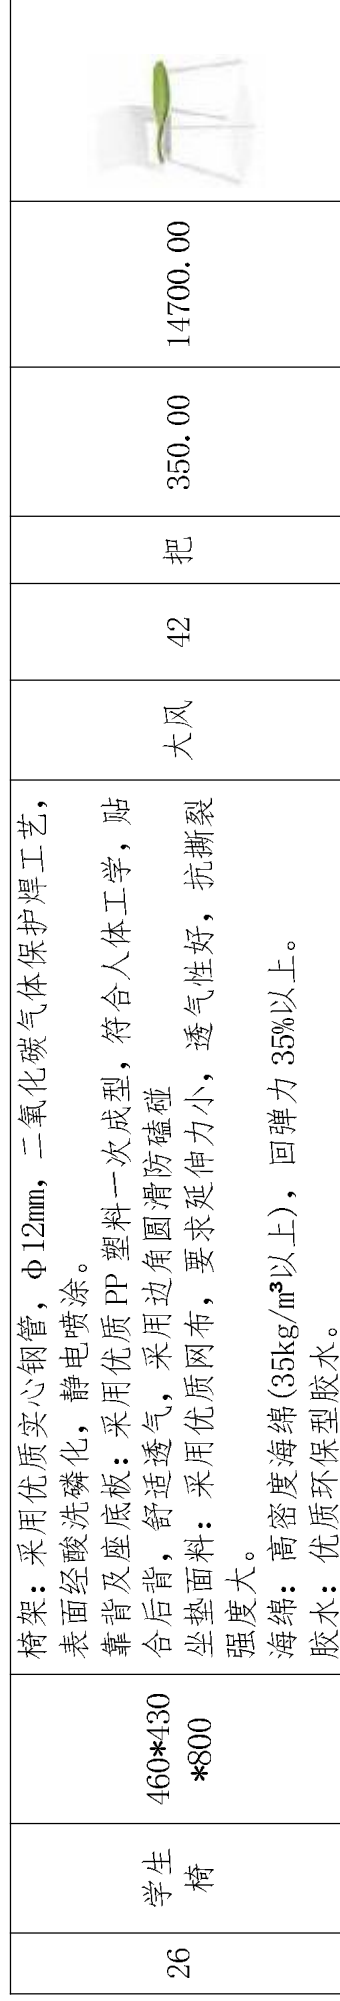 26
学生
椅
460*430
*800
椅架：采用优质实心钢管，φ12mm，二氧化碳气体保护焊工艺，
表面经酸洗磷化，静电喷涂。
靠背及座底板：采用优质 PP 塑料一次成型，符合人体工学，贴
合后背，舒适透气，采用边角圆滑防磕碰
坐垫面料：采用优质网布，要求延伸力小，透气性好，抗撕裂
强度大。
海绵：高密度海绵(35kg/m³以上)，回弹力 35%以上。
胶水：优质环保型胶水。
大风
42
把
350.00
14700.00